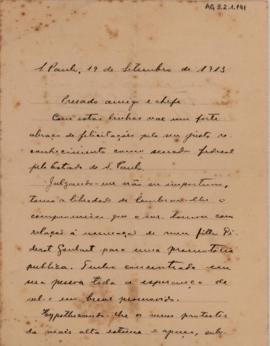 AG 3.2.1.141
S. Paulo, 19 de Setembro de 1913
Presado amigo e chefe
Com estas linhas vae um forte
abraço de felicitação pelo seu justo re
conhecimento como senador federal
pelo Estado de S. Paulo.
Julgando-me não ser importuno,
tomo a liberdade de lembrar-lhe o
compromisso que o snr. tomou com
relação à nomeação de meu filho
Goulart para uma promotoria
publica. Tenho concentrado em
sua pessoa toda a esperança de
vel-o em breve promovido.
Hypothecando-lhe os meus protestos
da mais alta estima e apreço, sub